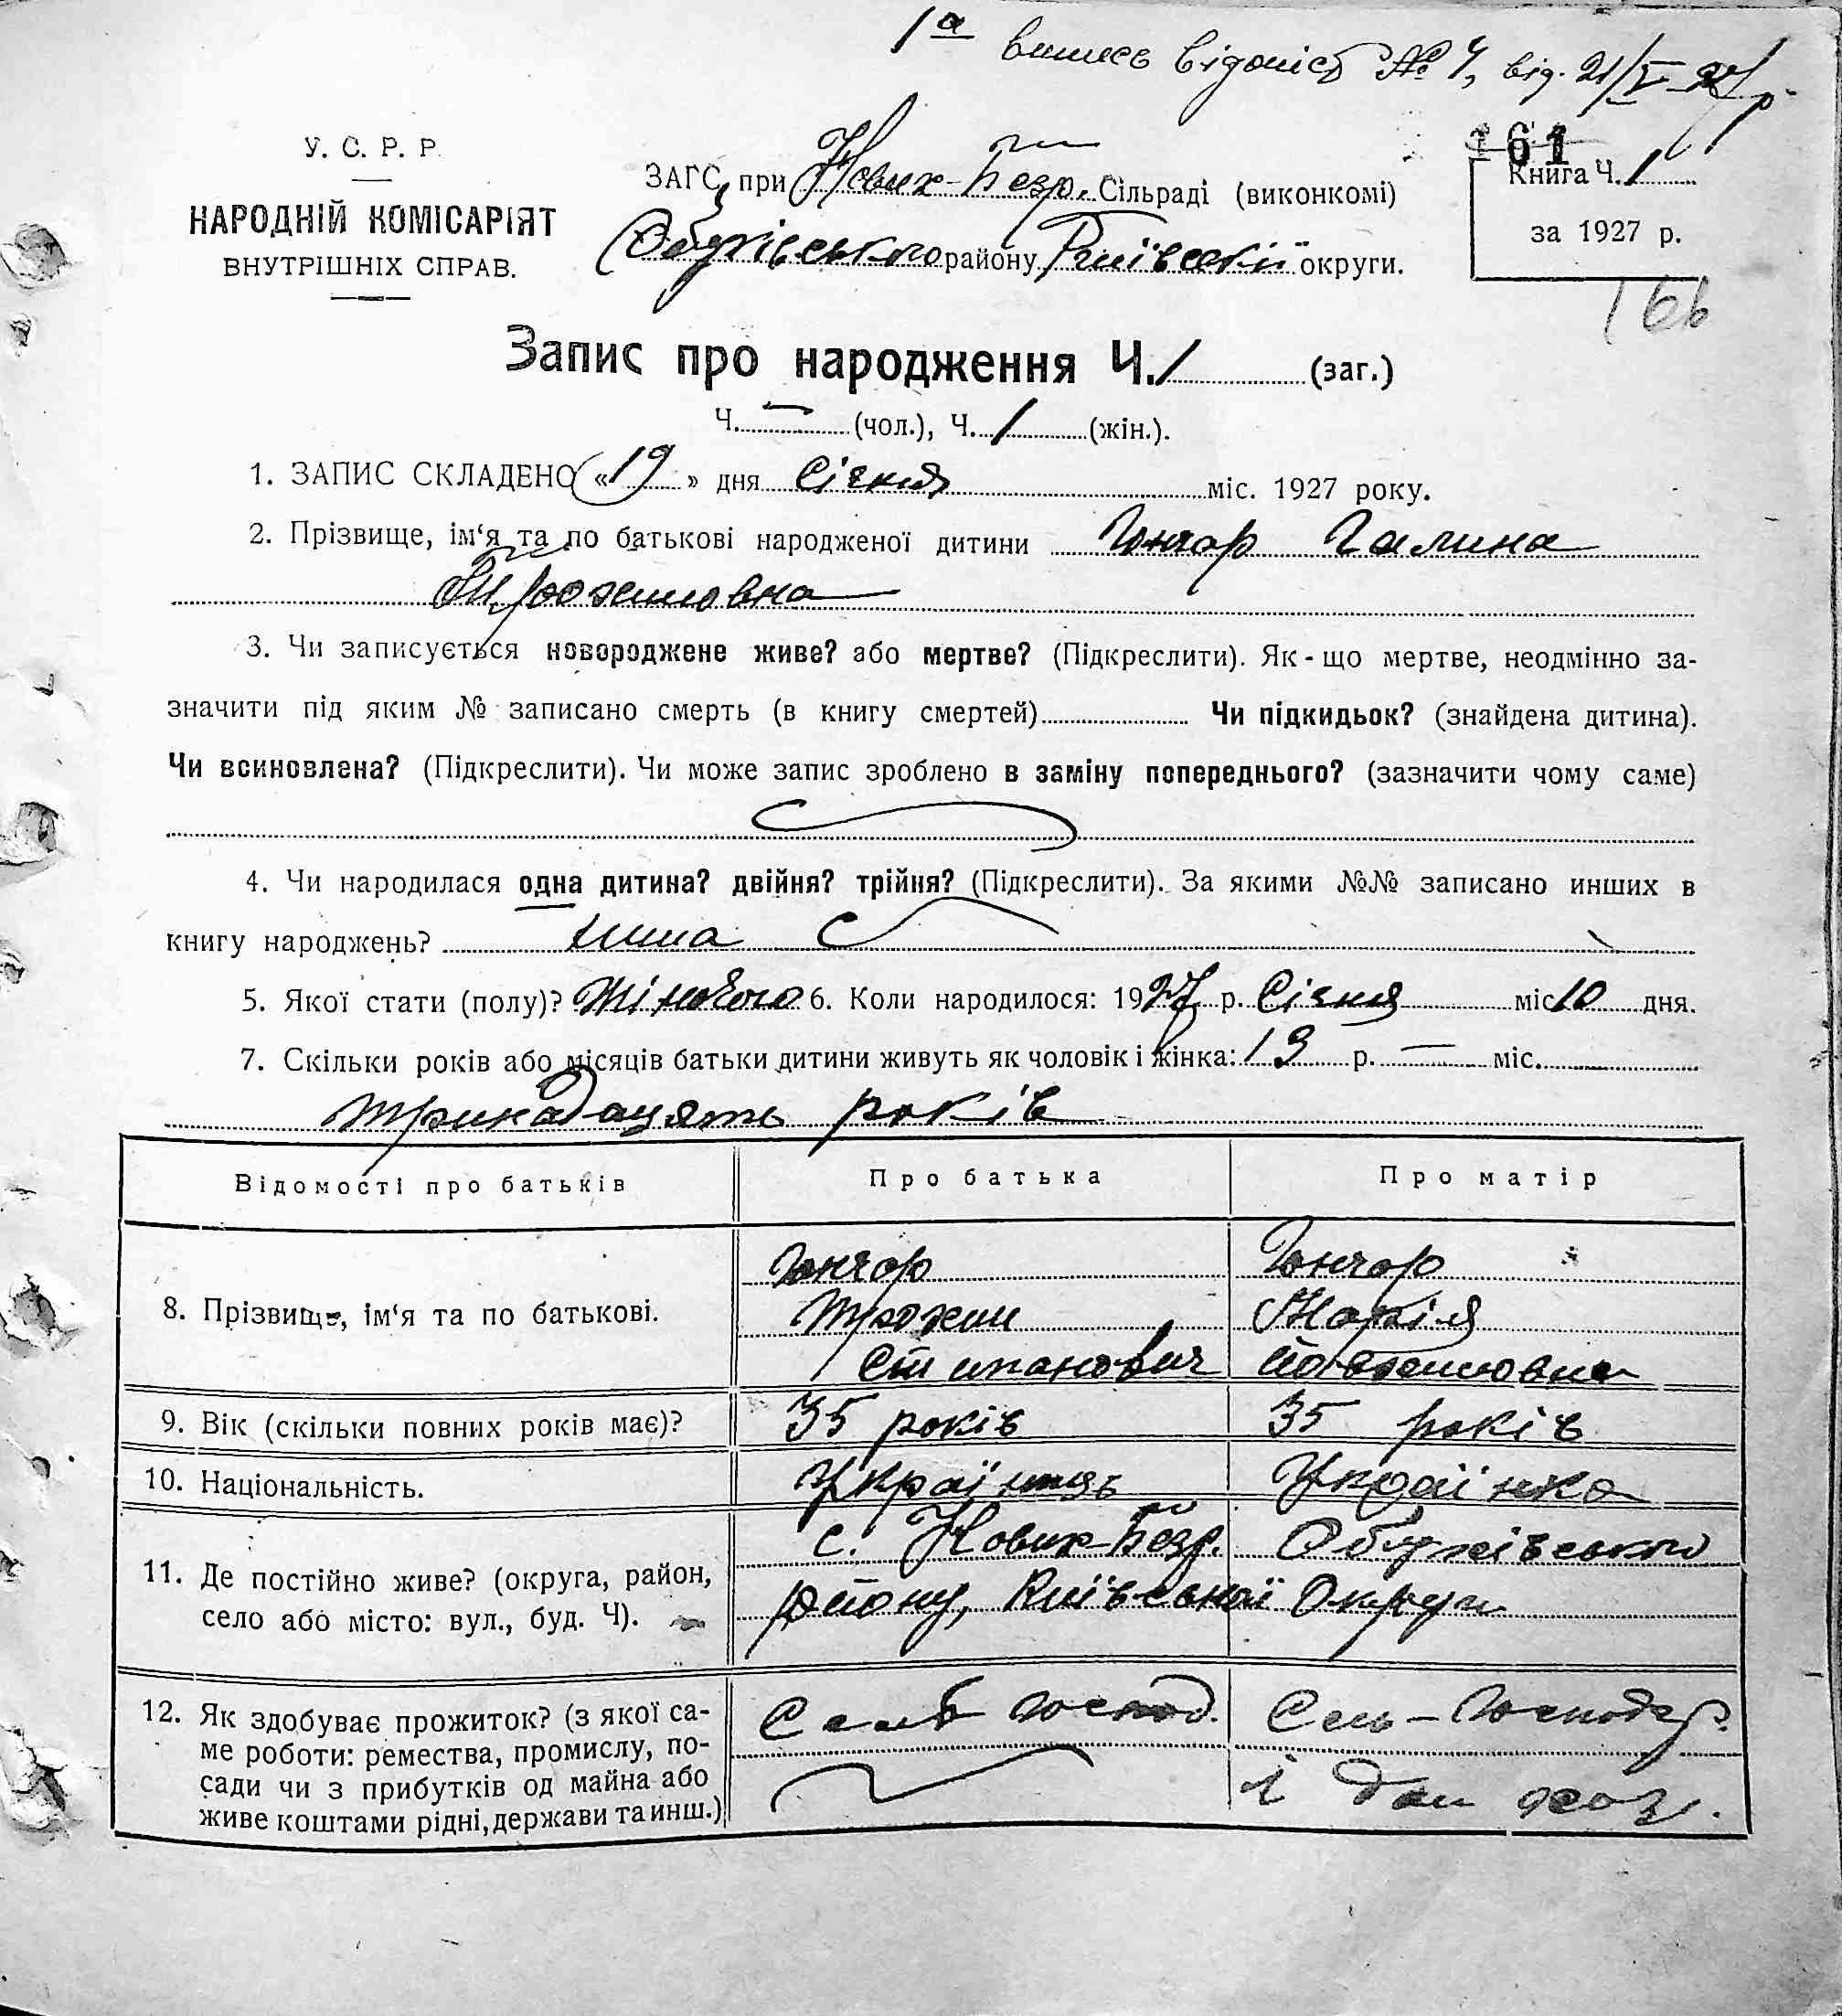 1а випись відоміст № 4, від. 21/V 27 р.
У. С. Р. Р.
НАРОДНІЙ КОМІСАРІЯТ
ВНУТРІШНІХ СПРАВ.
ЗАГС, при Нових-Безр. Сільраді (виконкомі)
Обухівського району, Київської округи.
161
Книга Ч. 1
за 1927 р.
166
Запис про народження Ч. 1 (заг.)
Ч. — (чол.), Ч. 1 (жін.).
1. ЗАПИС СКЛАДЕНО «19» дня Січня міс. 1927 року.
2. Прізвище, ім‘я та по батькові народженої дитини Гончар Галина
Трохимовна
3. Чи записується новороджене живе? або мертве? (Підкреслити). Як-що мертве, неодмінно за-
значити під яким № записано смерть (в книгу смертей) Чи підкидьок? (знайдена дитина).
Чи всиновлена? (Підкреслити). Чи може запис зроблено в заміну попереднього? (зазначити чому саме)
4. Чи народилася одна дитина? двійня? трійня? (Підкреслити). За якими №№ записано инших в
книгу народжень?
5. Якої стати (полу)? Жіночого 6. Коли народилося: 1927 р. Січня міс 10 дня.
7. Скільки років або місяців батьки дитини живуть як чоловік і жінка: 13 р. — міс.
тринадцять років
Відомості про батьків Про батька Про матір
8. Прізвище, ім‘я та по батькові.
Гончар Гончар
Трохим Марія
Степанович
9. Вік (скільки повних років має)? 35 років 35 років
10. Національність. Українець Українка
11. Де постійно живе? (округа, район,
село або місто: вул., буд. Ч).
с. Нових-Безр. Обухівського
району, Київської Округи
12. Як здобуває прожиток? (з якої са-
ме роботи: ремества, промислу, по-
сади чи з прибутків од майна або
живе коштами рідні, держави та инш.)
Сель господ. Сель-Господар.
і дом хоз.